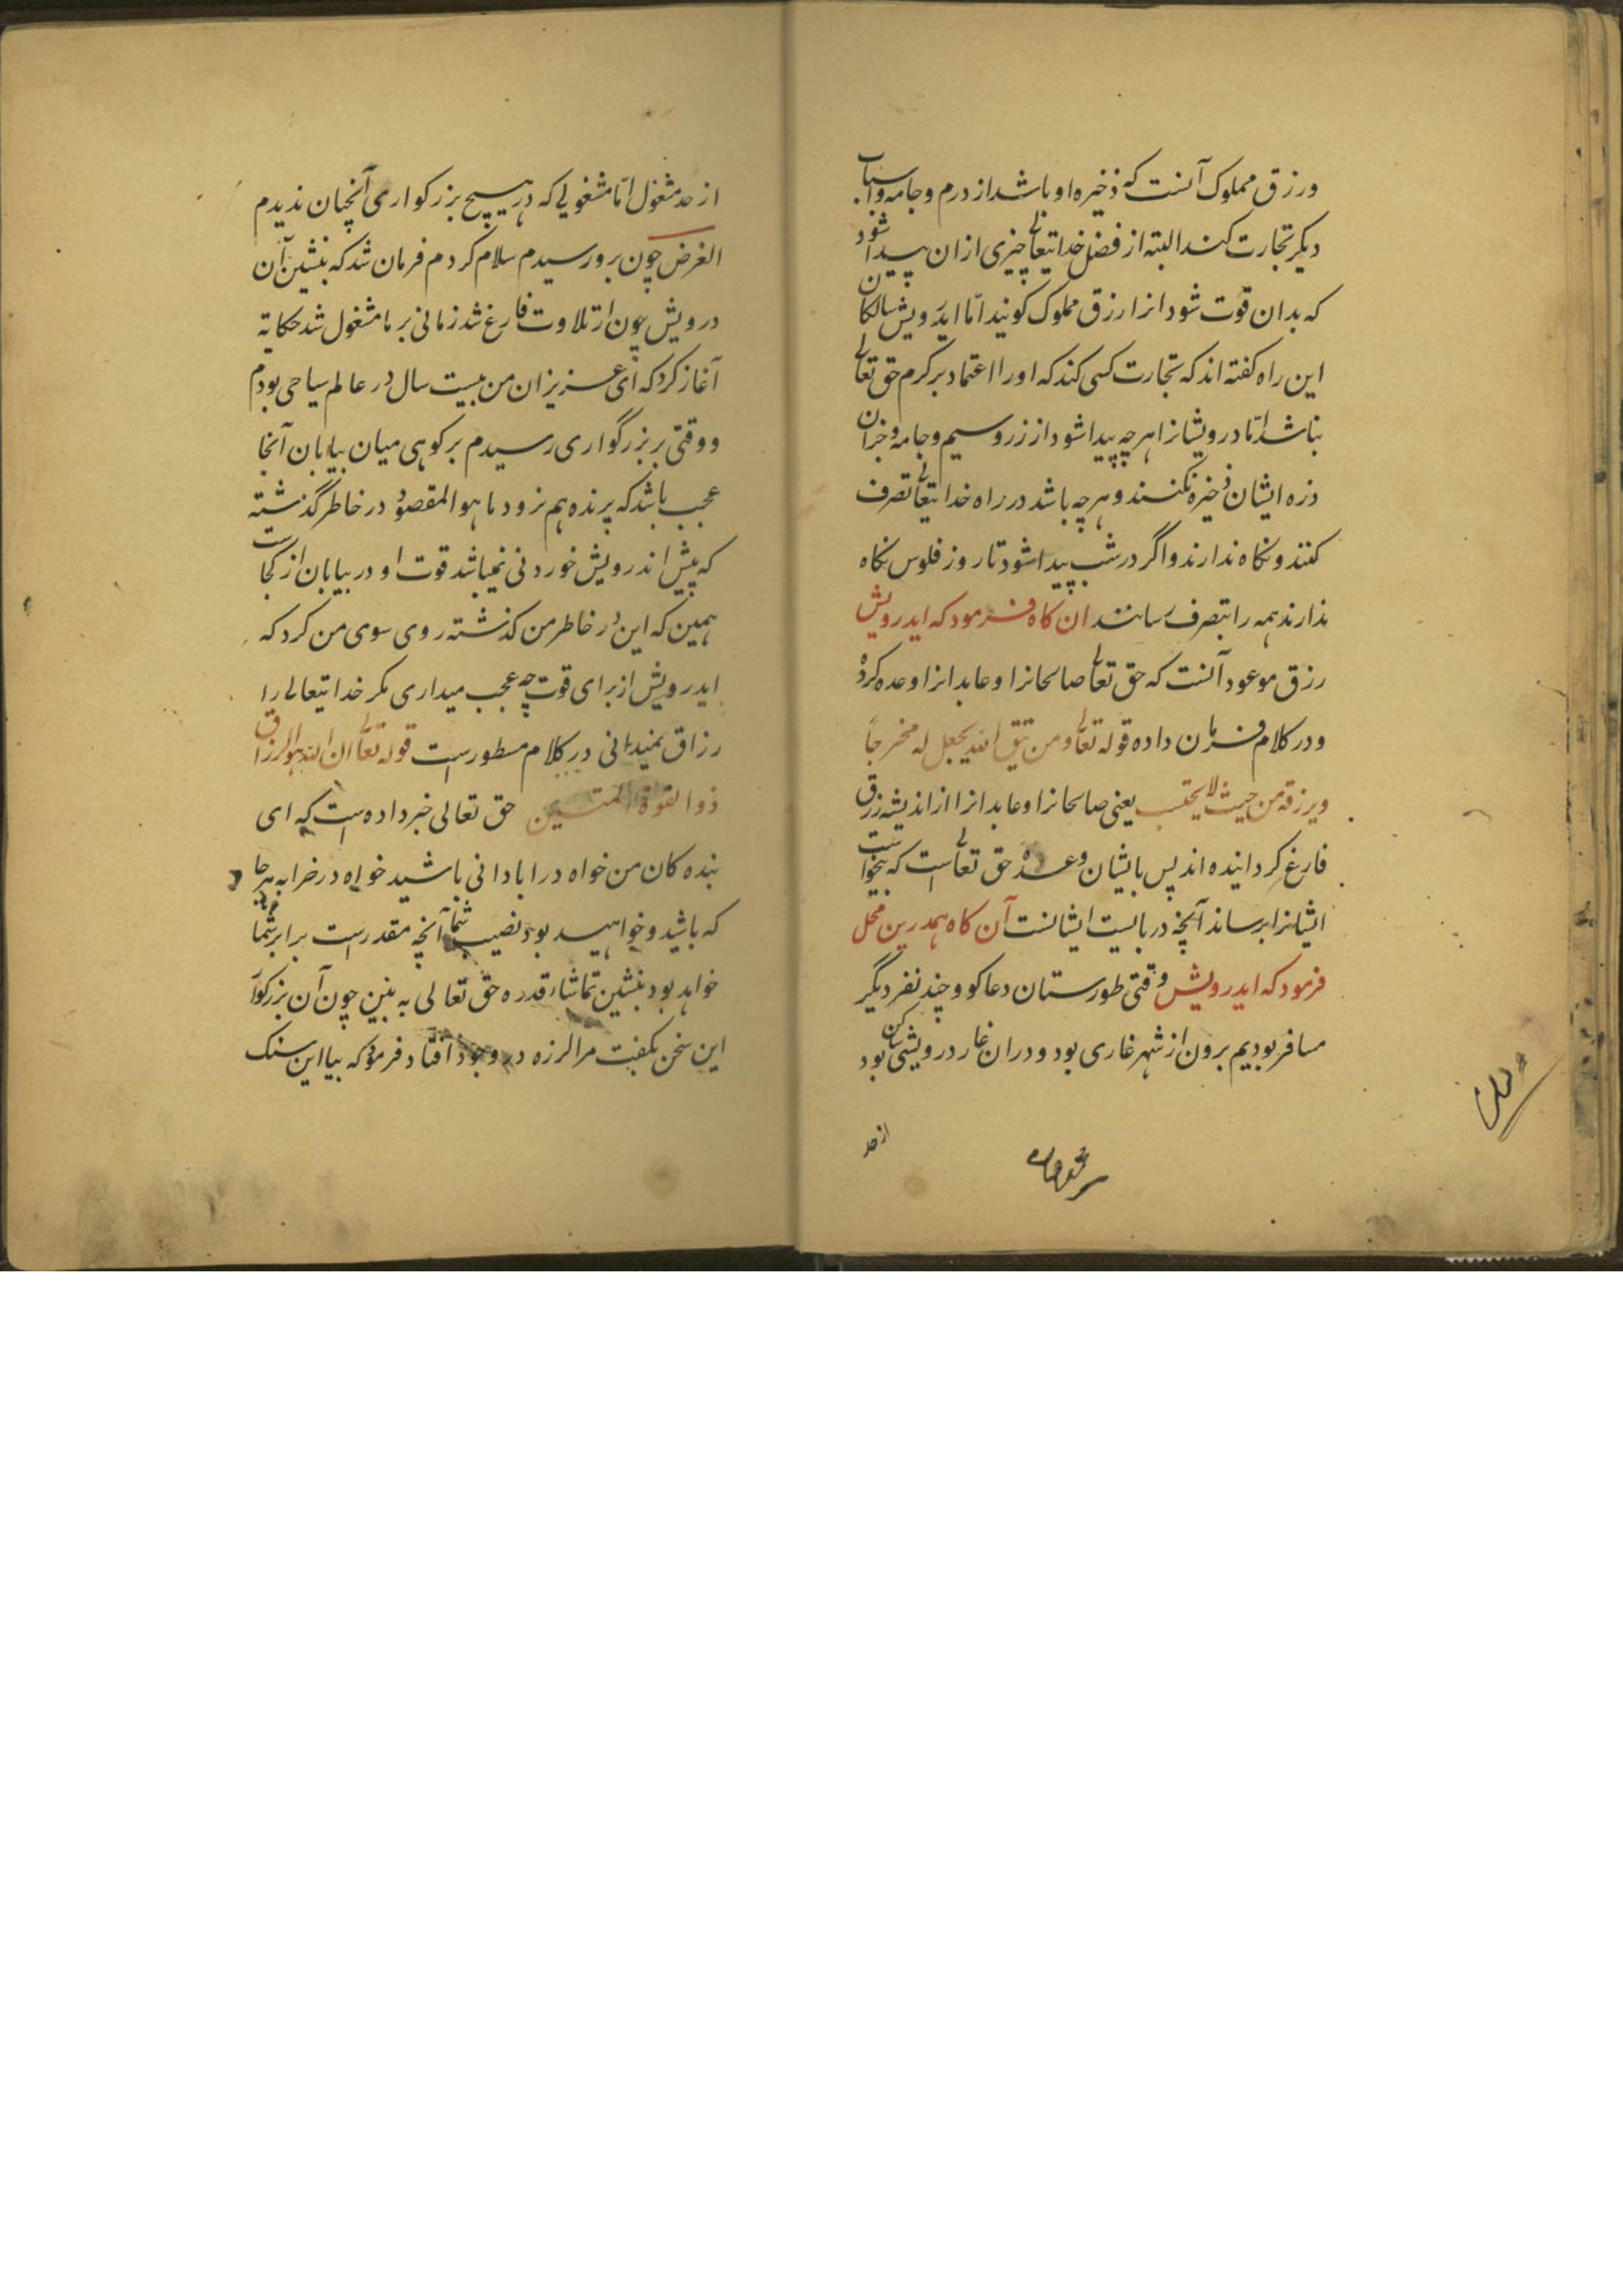 ورزق مملوک آنست که ذخیره او باشد از درم و جامه و اسباب
دیکر تجارت کند البته از فضل خدایتعالی چیزی ازان پیدا شود
که بدان قوت شود انرا رزق مملوک کویند امّا ایدرویش سالکان
این راه کفته اند که تجارت کسی کند که او را اعتماد بر کرم حق تعالی
نباشد امّا درویشانرا هرچه پیدا شود از زر و سیم و جامه و جزان
ذره ایشان ذخیره نکنند و هرچه باشد در راه خدایتعالی تصرف
کنند و نکاه ندارند و اگر در شب پیدا شود تا روز فلوس نکاه
ندارند همه را بتصرف رسانند ان کاه فرمود که ایدرویش
رزق موعود آنست که حق تعالی صالحانرا و عابدانرا وعده کرده
و در کلام فرمان داده قوله تعالی ومن یتق الله یجعل له مخرجاً
ویرزقه من حیث لا یحتسب یعنی صالحانرا و عابدانرا از اندیشه رزق
فارغ کردانیده اند پس بایشان وعده حق تعالی است که بیخواست
ایشانرا برساند آنچه دربایست ایشانست آن کاه همدرین محل
فرمود که ایدرویش وقتی طورستان دعاکو و چند نفر دیگر
مسافر بودیم برون از شهر غاری بود و دران غار درویشی ساکن بود
از حد
از حد مشغول امّا مشغولی که در هیچ بزرکواری آنچنان ندیدم
الغرض چون برو رسیدم سلام کردم فرمان شد که بنشین آن
درویش چون از تلاوت فارغ شد زمانی بر ما مشغول شد حکایة
آغاز کرد که ای عزیزان من بیست سال در عالم سیاحی بودم
و وقتی بر بزرگواری رسیدم بر کوهی میان بیابان آنجا
عجب باشد که پرنده هم نرود ما هو المقصود در خاطر گذشته
که پیش اندرویش خوردنی نمیباشد قوت او در بیابان از کجاست
همین که این در خاطر من کذشته روی سوی من کرد که
ایدرویش از برای قوت چه عجب میداری مکر خدایتعالی را
رزاق نمیدانی در کلام مسطورست قوله تعالی ان الله هو الرزاق
ذوا لقوة المتین حق تعالی خبر داده است که ای
بنده کان من خواه در ابادانی باشید خواه در خرابه هرجا
که باشید و خواهید بود نصیب شما آنچه مقدرست برابر شما
خواهد بود بنشین تماشاء قدره حق تعالی به بین چون آن بزرکوار
این سخن بکفت مرا لرزه در وجود افتاد فرمود که بیا این سنک